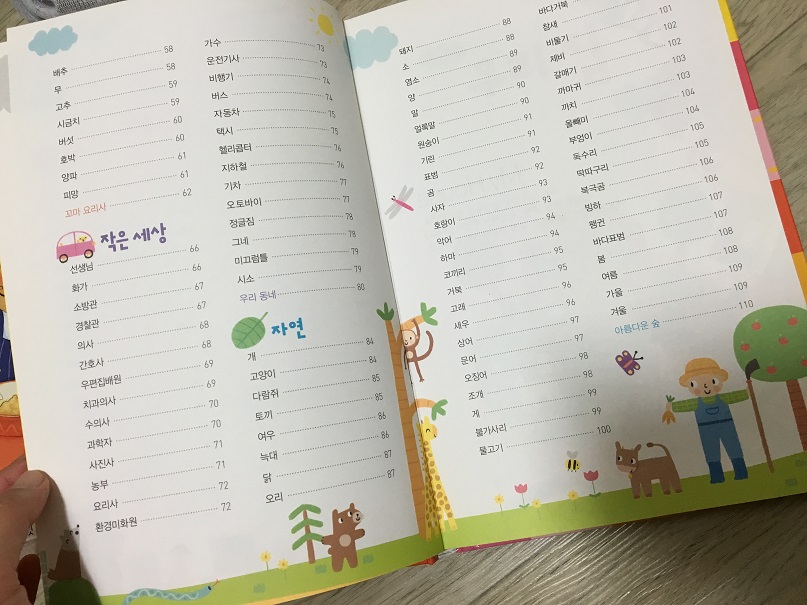 배추 58
무 58
고추 59
시금치 59
버섯 60
호박 60
양파 61
피망 61
꼬마 요리사 62
작은 세상
선생님 66
화가 66
소방관 67
경찰관 67
의사 68
간호사 68
우편집배원 69
치과의사 69
수의사 70
과학자 70
사진사 71
농부 71
요리사 72
환경미화원 72
가수 73
운전기사 73
비행기 74
버스 74
자동차 75
택시 75
헬리콥터 76
지하철 76
기차 77
오토바이 77
정글짐 78
그네 78
미끄럼틀 79
시소 79
우리 동네 80
자연
개 84
고양이 84
다람쥐 85
토끼 85
여우 86
늑대 86
닭 87
오리 87
돼지 88
소 88
염소 89
양 89
말 90
얼룩말 90
원숭이 91
기린 91
표범 92
곰 92
사자 93
호랑이 93
악어 94
하마 94
코끼리 95
거북 95
고래 96
새우 96
상어 97
문어 97
오징어 98
조개 98
게 99
불가사리 99
물고기 100
바다거북
참새 101
비둘기 101
제비 102
갈매기 102
까마귀 103
까치 103
올빼미 104
부엉이 104
독수리 105
딱따구리 105
북극곰 106
빙하 106
펭귄 107
바다표범 107
봄 108
여름 108
가을 109
겨울 109
아름다운 숲 110